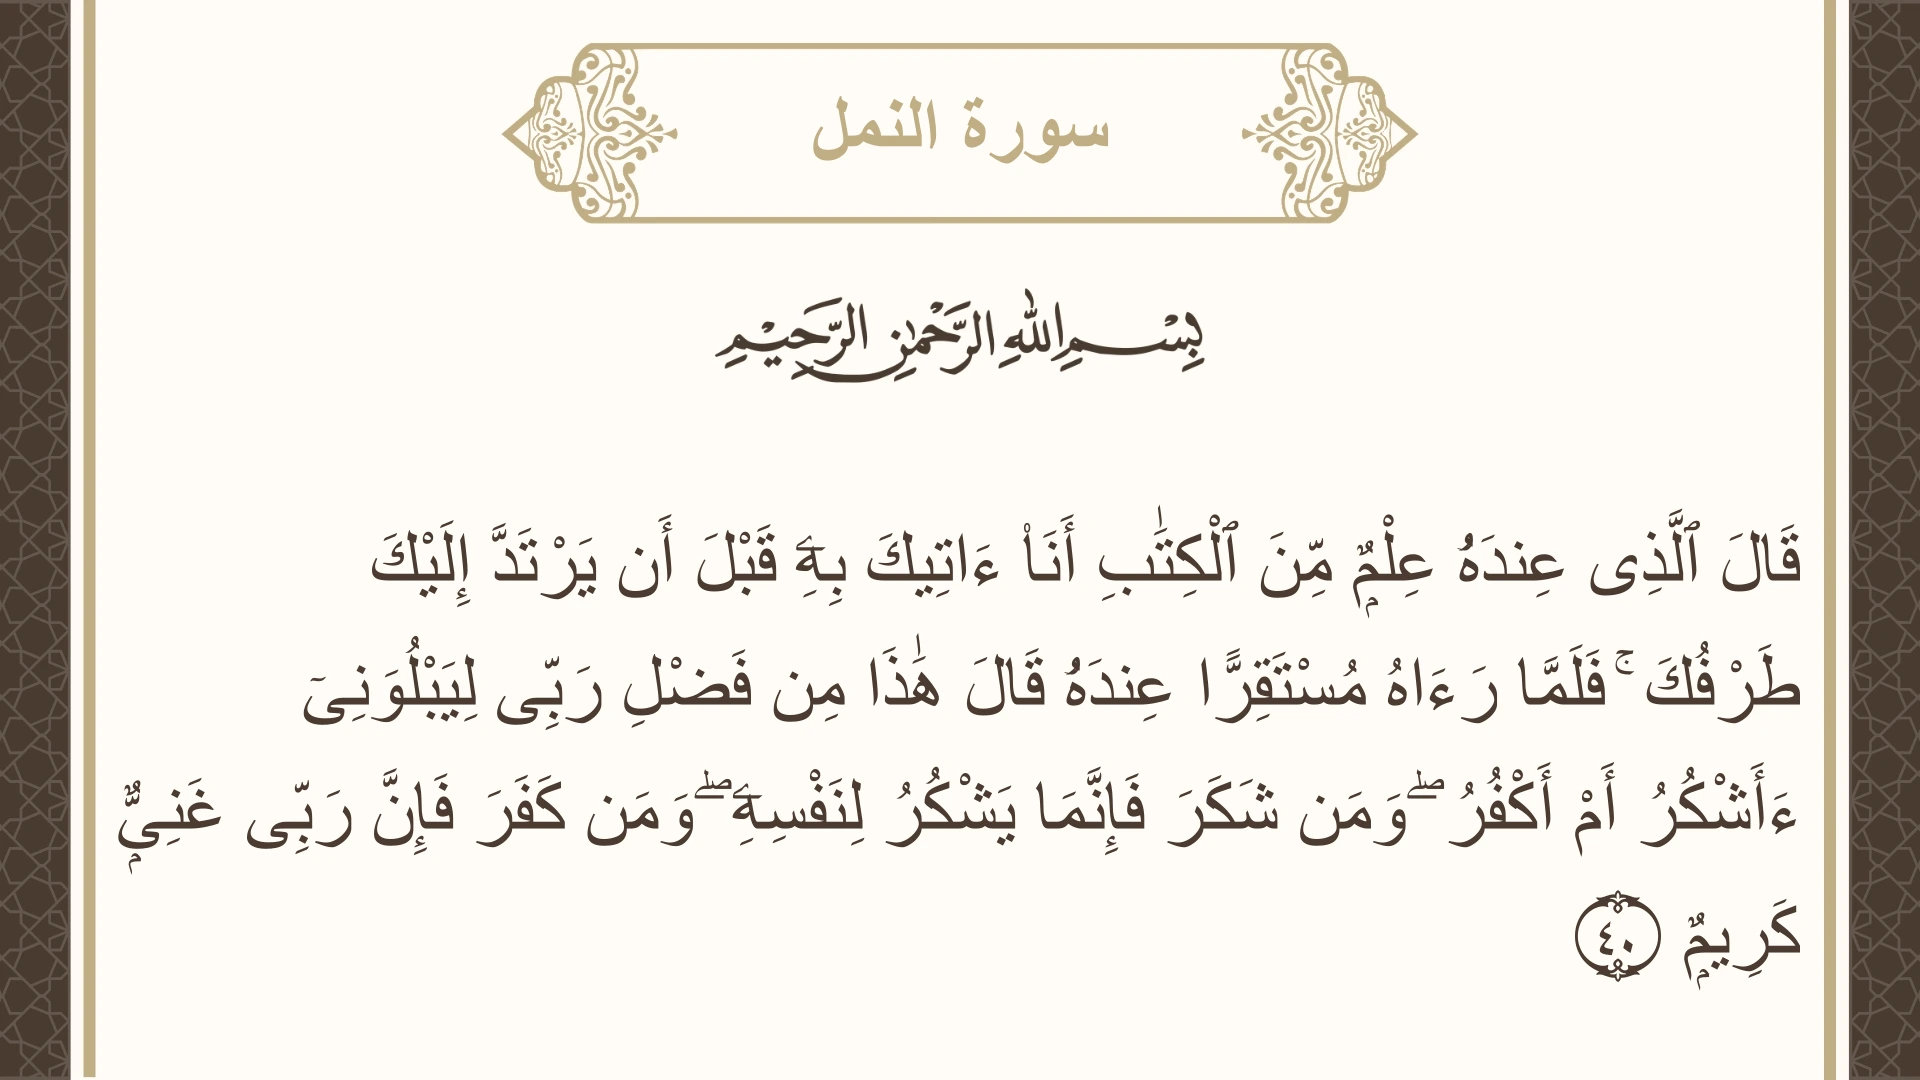 سورة النمل
بِسْمِ اللهِ الرَّحْمٰنِ الرَّحِيْمِ
قَالَ ٱلَّذِى عِندَهُۥ عِلْمٌۭ مِّنَ ٱلْكِتَـٰبِ أَنَا۠ ءَاتِيكَ بِهِۦ قَبْلَ أَن يَرْتَدَّ إِلَيْكَ
طَرْفُكَ ۚ فَلَمَّا رَءَاهُ مُسْتَقِرًّا عِندَهُۥ قَالَ هَـٰذَا مِن فَضْلِ رَبِّى لِيَبْلُوَنِىٓ
ءَأَشْكُرُ أَمْ أَكْفُرُ ۖ وَمَن شَكَرَ فَإِنَّمَا يَشْكُرُ لِنَفْسِهِۦ ۖ وَمَن كَفَرَ فَإِنَّ رَبِّى غَنِىٌّۭ
كَرِيمٌۭ ٤٠